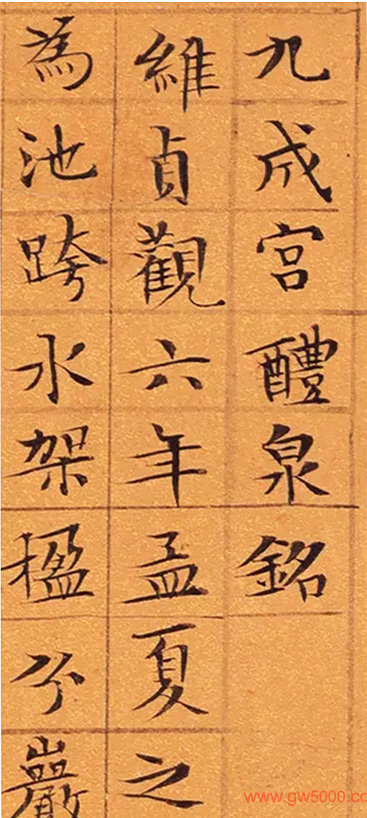 九成宮醴泉銘
維貞觀六年孟夏之
為池跨水架楹分巖
www.gw5000.co